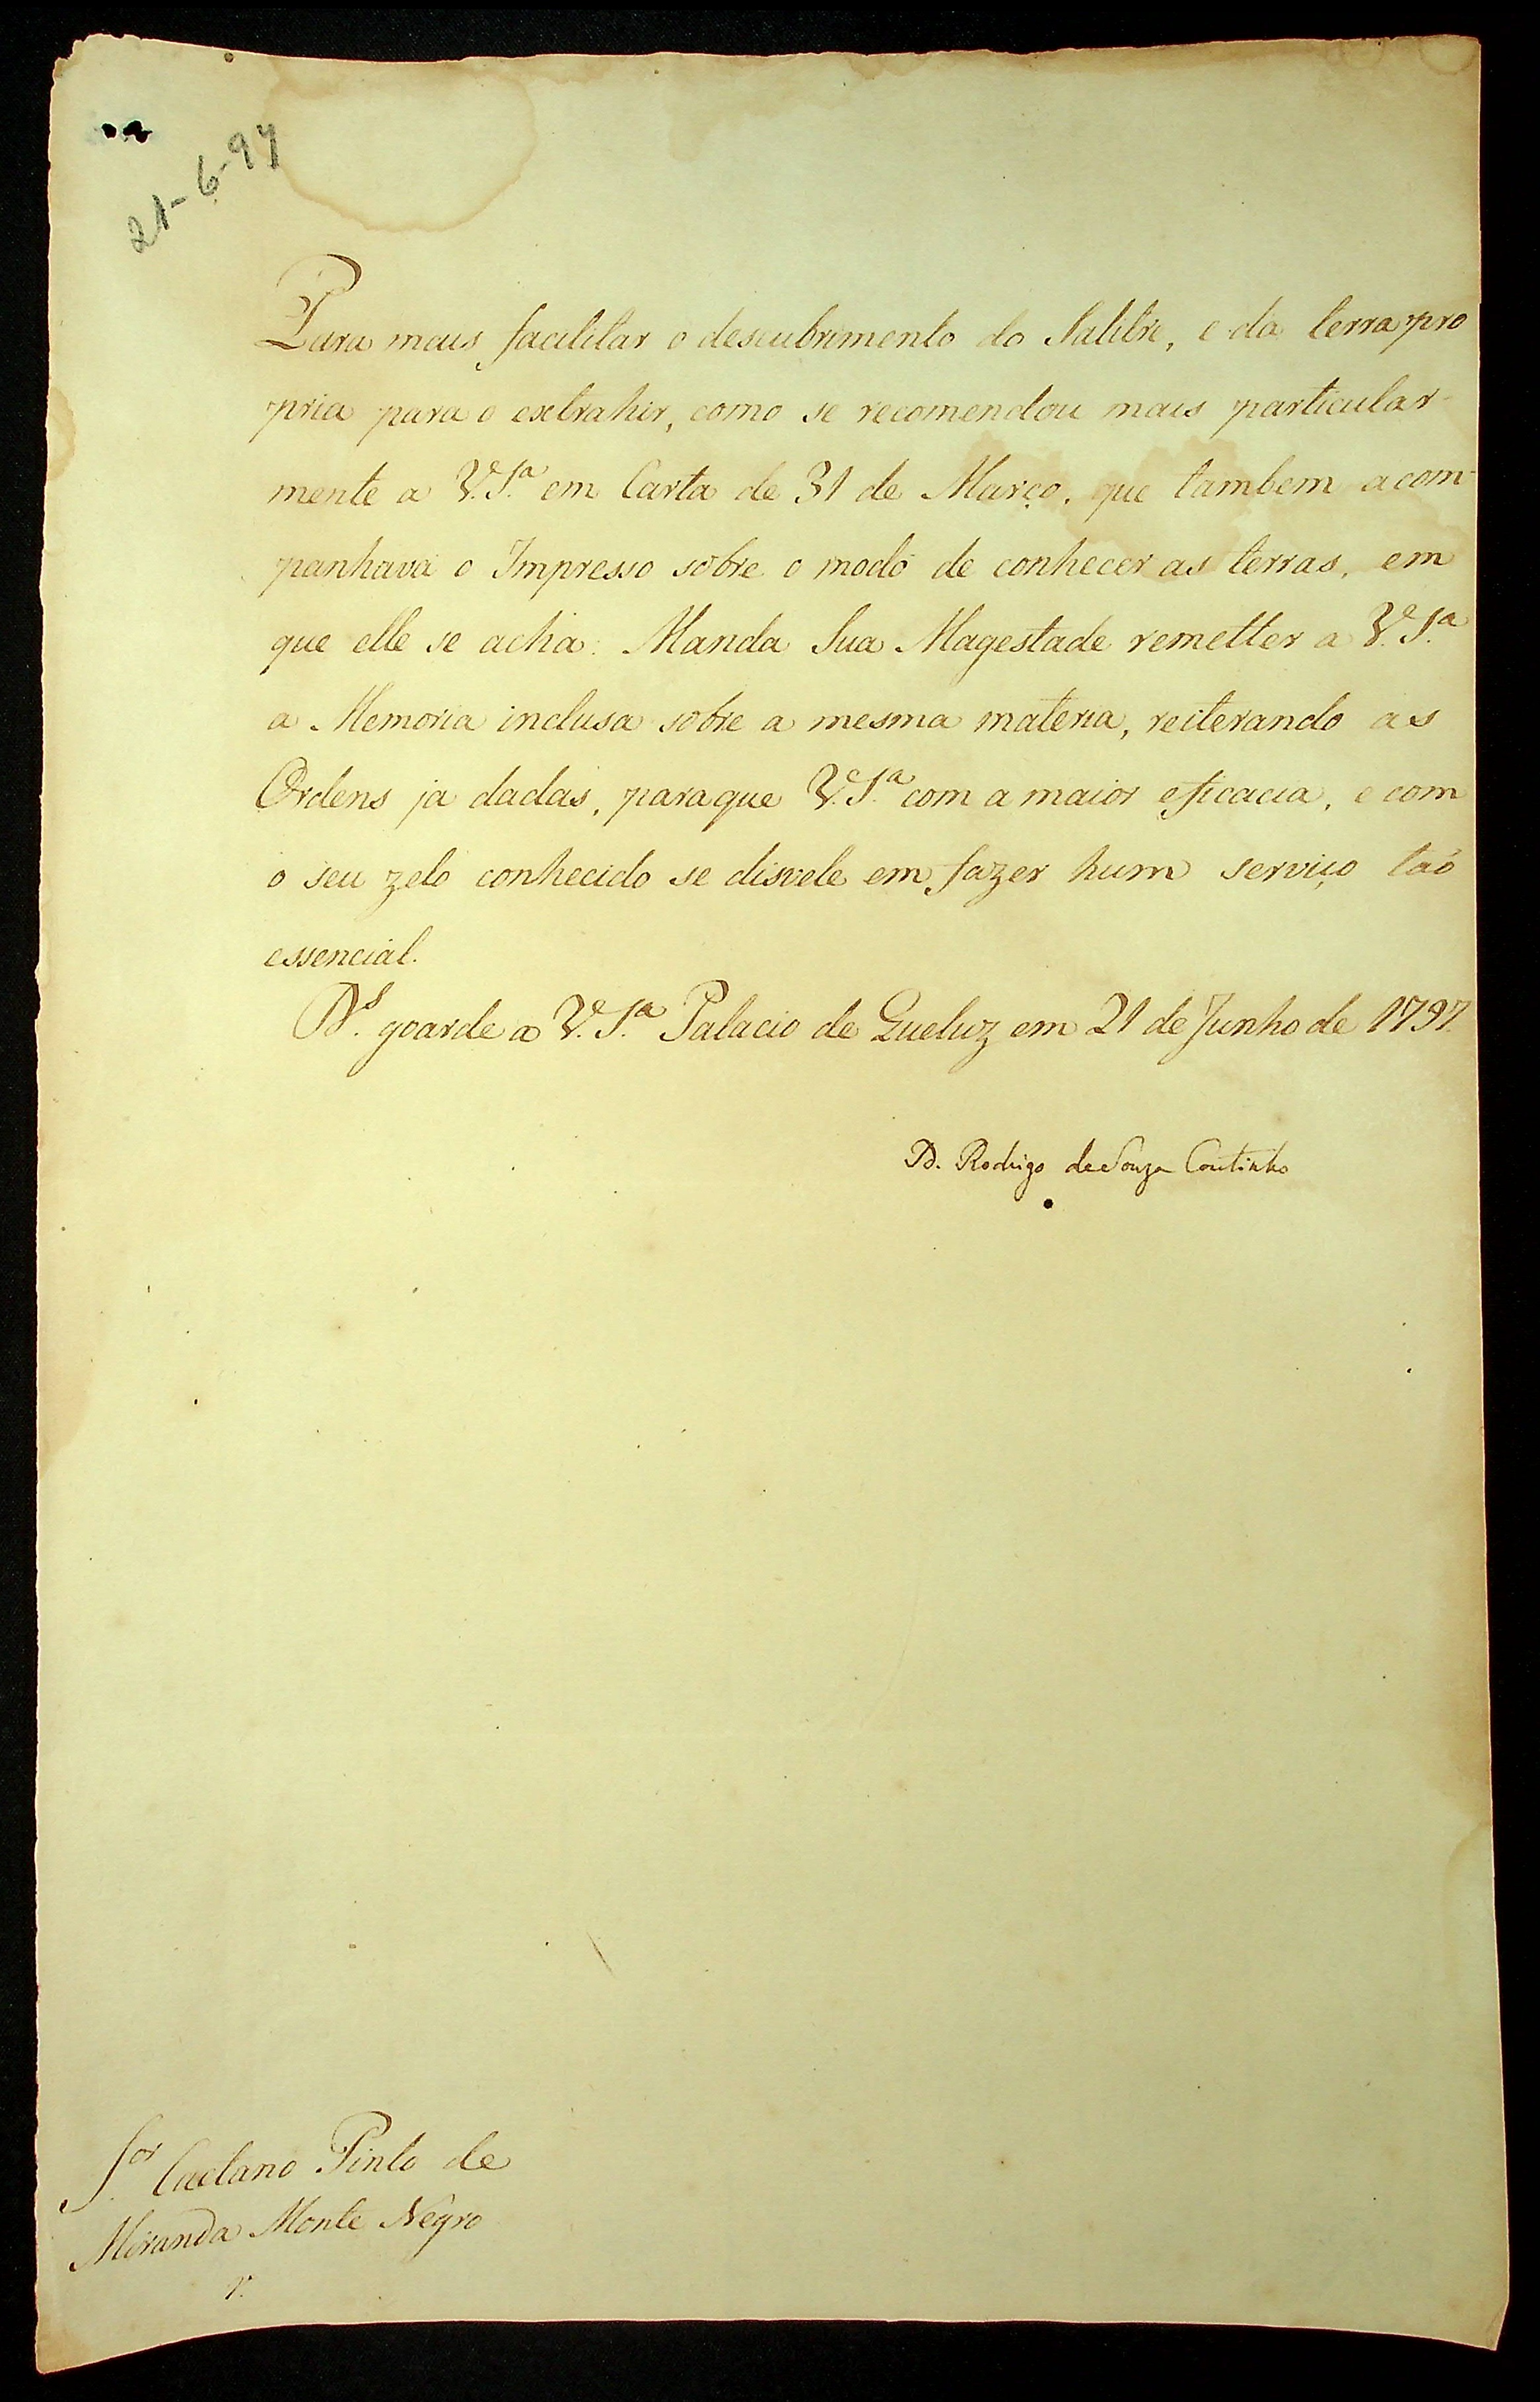 21-6-97
Para mais facilitar o descubrimento do Salitre, e da terra pro
pria para o extrahir, como se recomendou mais particular-
mente a V. S.ª em Carta de 31 de Março, que tambem acom-
panhava o Impresso sobre o modo de conhecer as terras, em
que elle se acha: Manda Sua Magestade remetter a V. S.ª
a Memoria inclusa sobre a mesma materia, reiterando as
Ordens ja dadas, paraque V. S.ª com a maior eficacia, e com
o seu zelo conhecido se disvele em fazer hum serviço taõ
essencial.
D.s goarde a V. S.ª Palacio de Queluz em 21 de Junho de 1797.
D. Rodrigo de Souza Coutinho
S.or Caetano Pinto de
Miranda Monte Negro